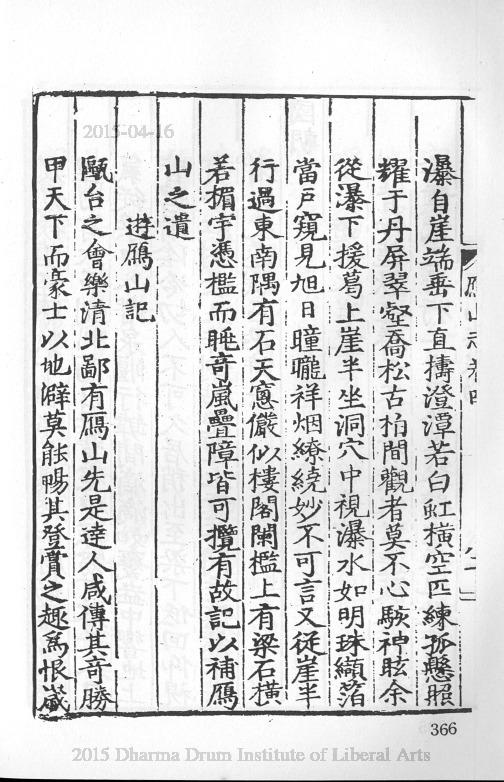 瀑自崖端垂下直擣澄潭若白虹橫空匹練孤懸照
耀于丹屏翠壑喬松古柏間觀者莫不心駭神眩余
從瀑下援葛上崖半坐洞穴中視瀑水如明珠纈箔
當戶窺見旭日曈曨祥烟繚繞妙不可言又從崖半
行過東南隅有石天窻儼似樓閣闌檻上有梁石橫
若楣宇憑檻而眺奇嵐疊障皆可攬有故記以補鴈
山之遺
遊鴈山記
甌台之會樂清北鄙有鴈山先是達人咸傳其奇勝
甲天下而豪士以地僻莫能暢其登賞之趣為恨歲
鴈山志卷四
366
2015-04-16
2015 Dharma Drum Institute of Liberal Arts